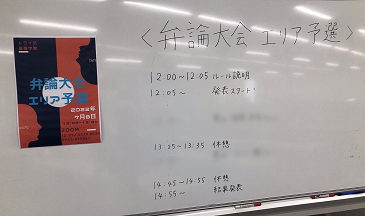 <弁論大会 エリア予選>
12:00~12:05 ルール説明
12:05~ 発表スタート
13:25~13:35 休憩
14:45~14:55 休憩
14:55~ 結果発表
弁論大会
エリア予選
2022年
7月9日
ZOOM